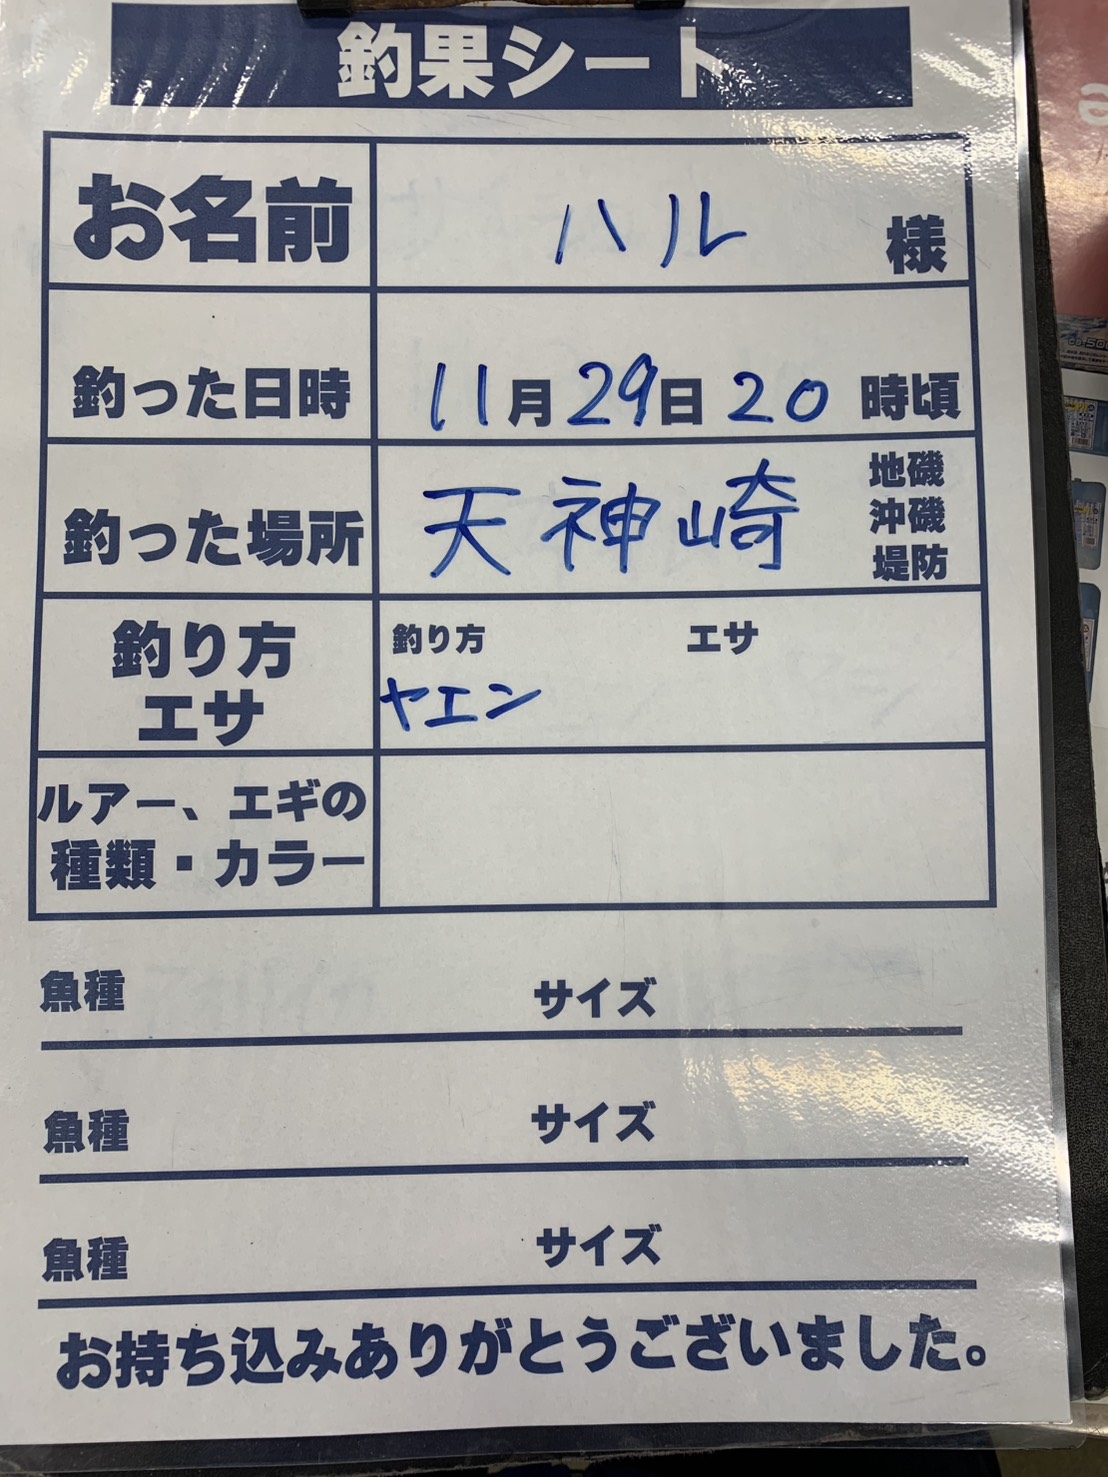 釣果シート
お名前 ハル 様
釣った日時 11月29日20時頃
釣った場所 天神崎 地磯
沖磯
堤防
釣り方
エサ
釣り方 エサ
ヤエン
ルアー、エギの
種類・カラー
魚種 サイズ
魚種 サイズ
魚種 サイズ
お持ち込みありがとうございました。